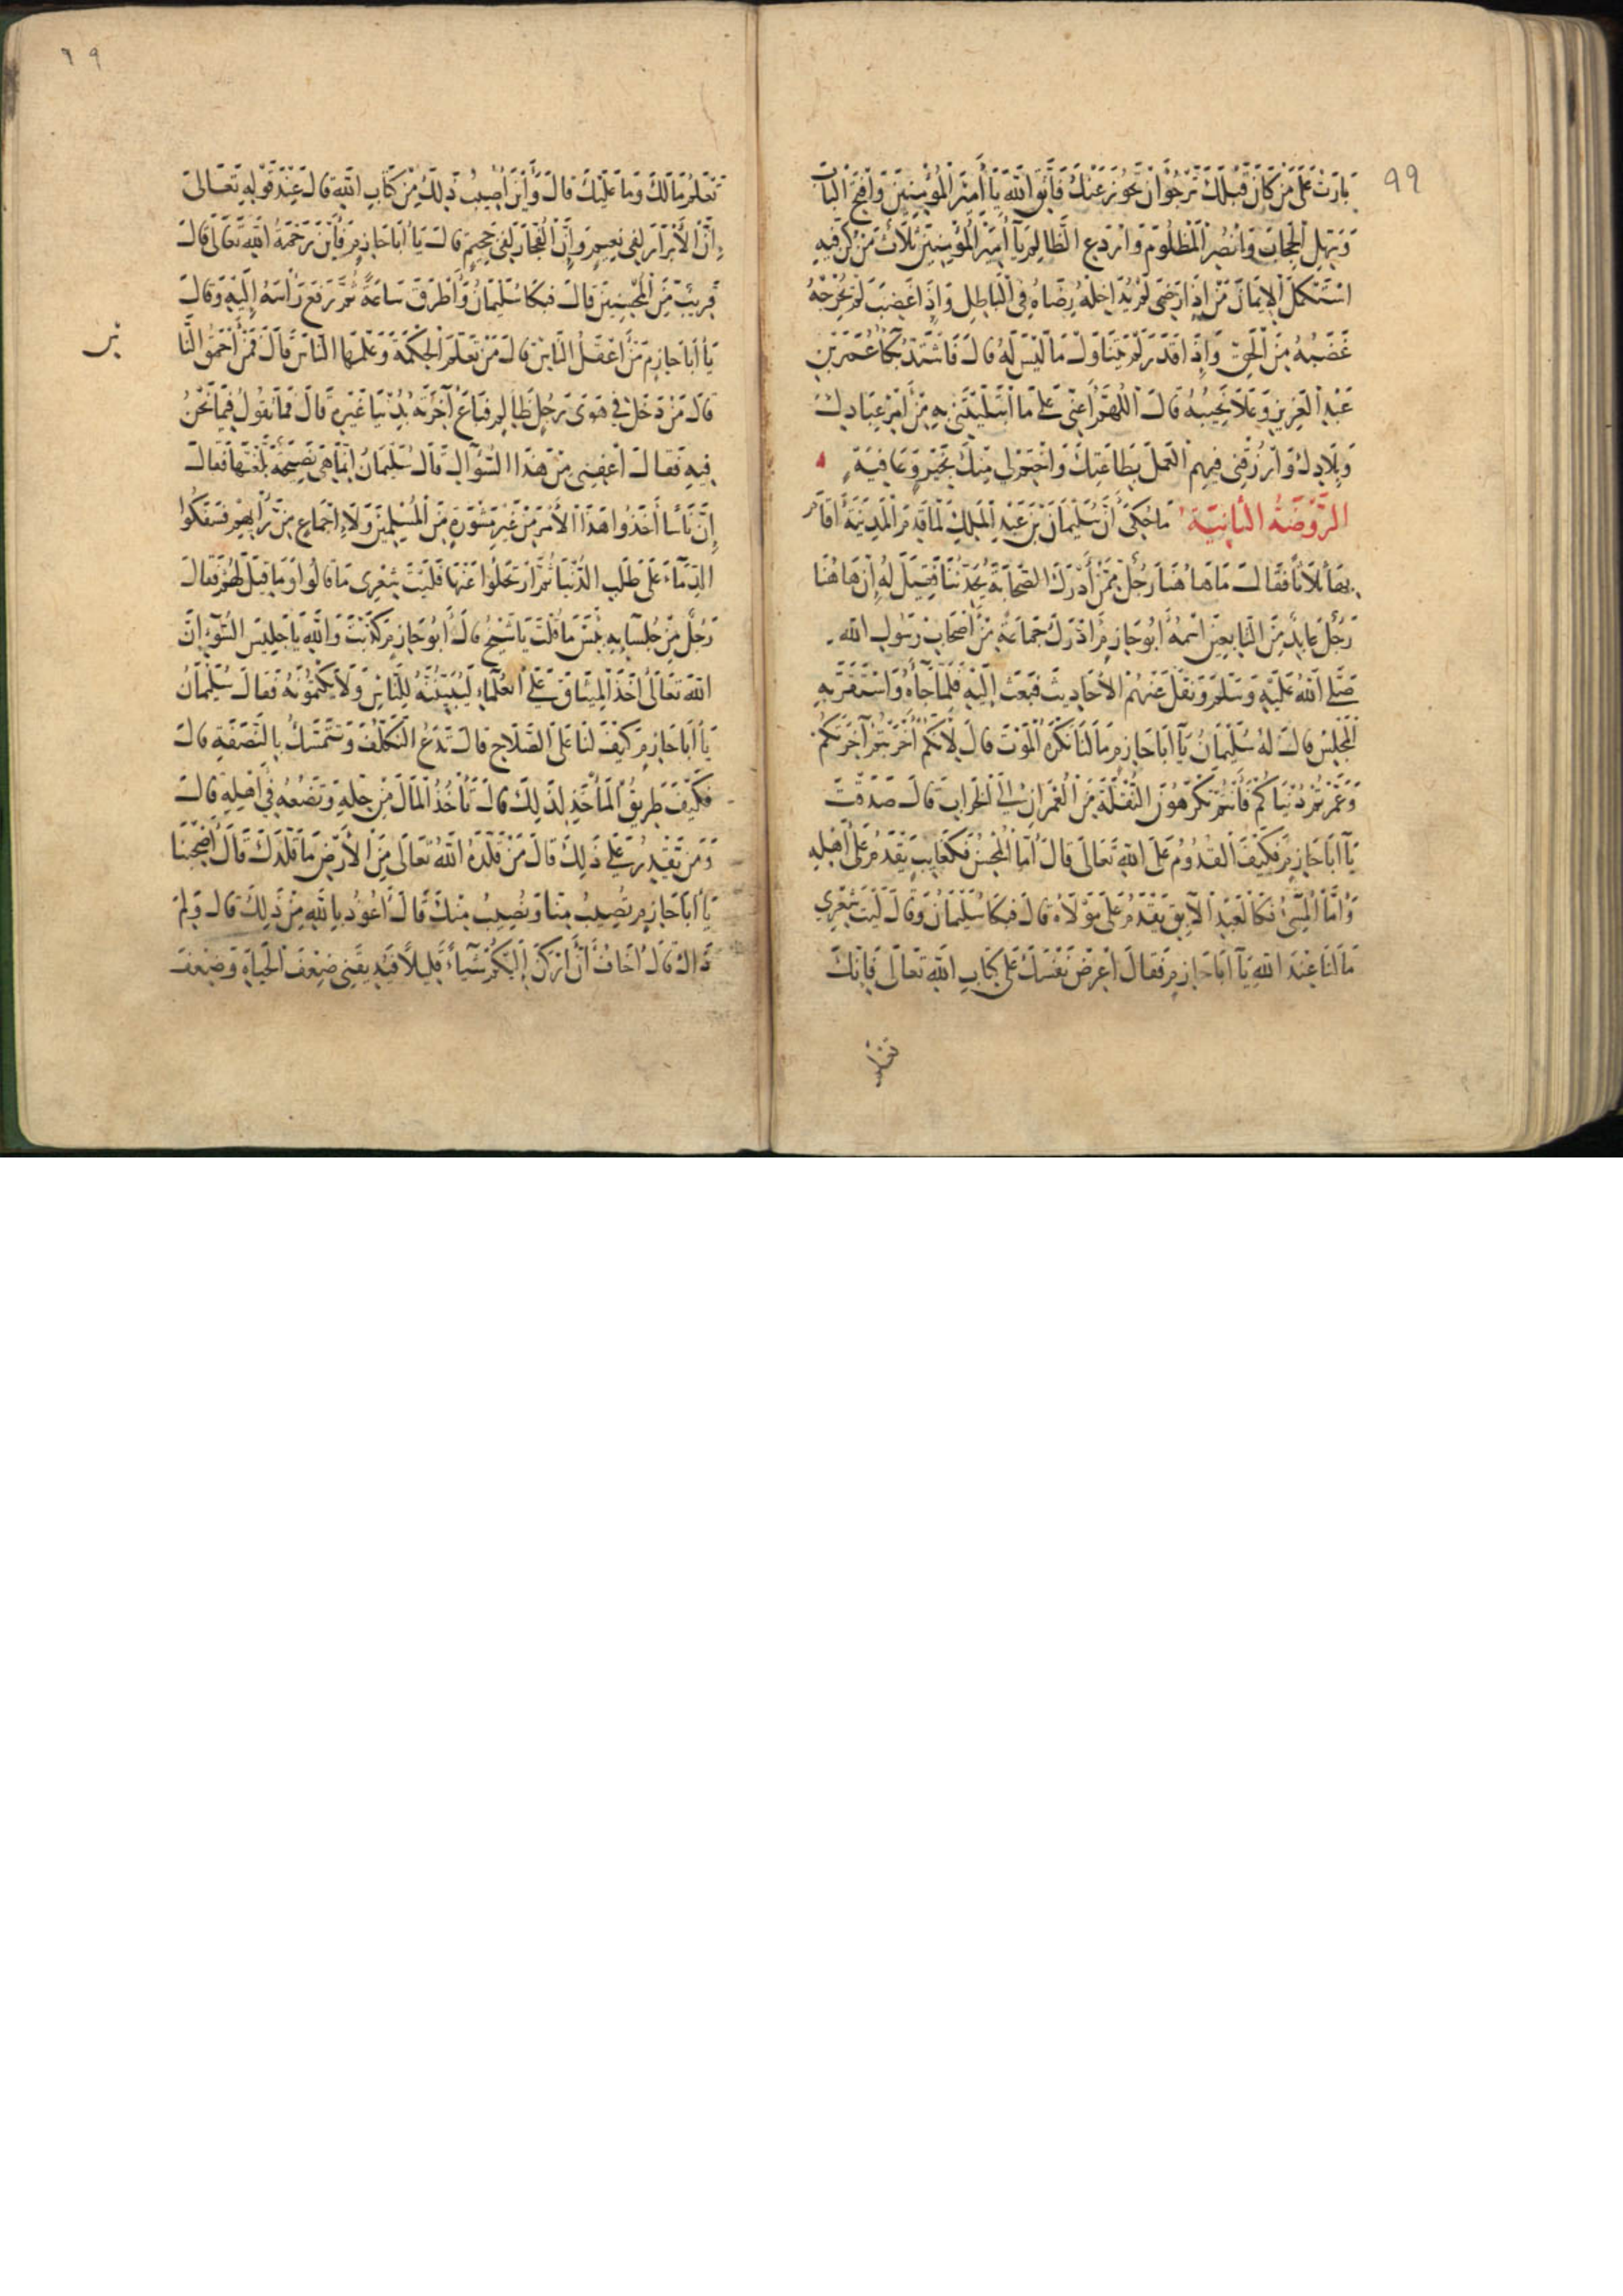 ٩٩
بارت على من كان قبلك ترجوا ان تجوز عنك فاتق الله يا أمير المؤمنين وافتح الباب
وسهل الحجاب وانصر المظلوم واردع الظالم يا أمير المؤمنين ثلاث من كن فيه
استكمل الإيمان من إذا رضى لم يدخله رضاه في الباطل وإذا غضب لم يخرجه
غضبه من الحق وإذا قدر لم يتناول ما ليس له قال فاشتد بكا عمر بن
عبد العزيز وعلا نحيبه قال اللهم أعنى على ما ابتليتنى به من أمر عبادك
وبلادك وارزقنى فيهم العمل بطاعتك واختم لى منك بخير وعافية
الروضة الثانية ما حكى أن سليمان بن عبد الملك لما قدم المدينة أقام
بها ثلاثا فقال ما هاهنا رجل ممن أدرك الصحابة يحدثنا فقيل له إن هاهنا
رجل عابد من التابعين اسمه أبو حازم أدرك جماعة من أصحاب رسول الله
صلى الله عليه وسلم ونقل عنهم الأحاديث فبعث إليه فلما جآءه واستقر به
المجلس قال له سليمان يآ أبا حازم ما لنا نكره الموت قال لأنكم أخربتم آخرتكم
وعمرتم دنياكم فأنتم تكرهون النقلة من العمران إلى الخراب قال صدقت
يآ أبا حازم فكيف القدوم على الله تعالى قال أما المحسن فكغايب يقدم على أهله
وأما المسئ فكالعبد الآبق يقدم على مولاه قال فبكا سليمان وقال ليت شعري
ما لنا عند الله يآ أبا حازم فقال اعرض نفسك على كتاب الله تعالى فإنك
تعلم
٦٩
تعلم ما لك وما عليك قال وأين أصيب ذلك من كتاب الله قال عند قوله تعالى
إن الأبرار لفى نعيم وإن الفجار لفى جحيم قال يا أبا حازم فأين رحمة الله تعالى قال
قريب من المحسنين قال فبكا سليمان وأطرق ساعة ثم رفع رأسه إليه وقال
يا أبا حازم من أعقل الناس قال من تعلم الحكمة وعلمها الناس قال فمن أحمق النا
س
قال من دخل في هوى رجل ظالم فباع آخرته بدنيا غيره قال فما تقول فيما نحن
فيه فقال اعفنى من هذا السؤال قال سليمان إنما هى نصيحة بلغتها فقال
إن ناسا أخذوا هذا الأمر من غير مشورة من المسلمين ولا إجماع من رأيهم فسفكوا
الدماء على طلب الدنيا ثم ارتحلوا عنها فليت شعرى ما قالوا وما قيل لهم فقال
رجل من جلسايه بئس ما قلت يا شيخ قال أبو حازم كذبت والله يا جليس السوء إن
الله تعالى أخذ الميثاق على العلماء ليبيننه للناس ولا يكتمونه فقال سليمان
يا أبا حازم كيف لنا على الصلاح قال تدع التكلف وتتمسك بالنصفة قال
فكيف طريق المأخذ لذلك قال تأخذ المال من حله وتضعه في أهله قال
ومن يقدر على ذلك قال من قلده الله تعالى من الأرض ما قلدك قال أصحبنا
يا أبا حازم تصيب منا ونصيب منك قال أعوذ بالله من ذلك قال ولم
ذاك قال أخاف أن أركن إليكم شيأ قليلا فيذيقنى ضعف الحياة وضعف